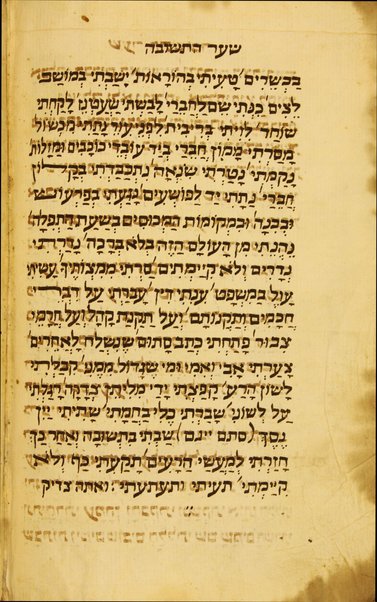 שער התשובה
בכשרים׳ טעיתי בהוראות׳ ישבתי במושב
לצים׳ כניתי שם לחברי׳ לבשתי שעטנז׳ לקחתי
שוחד׳ לויתי בריבית׳ לפני עור נתתי מכשול׳
מסרתי ממון חברי׳ ביד עובדי כוכבים ומזלות
נקמתי׳ נטרתי שנאה׳ נתכבדתי בקלון
חברי׳ נתתי יד לפושעים׳ נגעתי בפרעוש
ובכנה׳ ובמקומות המכוסים בשעת התפלה
נהניתי מן העולם הזה בלא ברכה׳ נדרתי
נדרים ולא קיימתים׳ סרתי ממצותיך׳ עשיתי
עול במשפט׳ עניתי דין׳ עברתי על דברי
חכמים ותקנותם׳ ועל תקנת קהל ועל חרמי
צבור׳ פתחתי כתב סתום שנשלח לאחרים׳
צערתי אבי ואמי ומי שגדול ממני׳ קבלתי
לשון הרע׳ קפצתי ידי מליתן צדקה׳ רגלתי
על לשוני׳ שברתי כלי בחמתי׳ שתיתי יין
נסך׳ (סתם יינם) שבתי בתשובה ואחר כך
חזרתי למעשי הרעים׳ תקעתי כף ולא
קיימתי׳ תעיתי ותעתעתי׃ ואתה צדיק